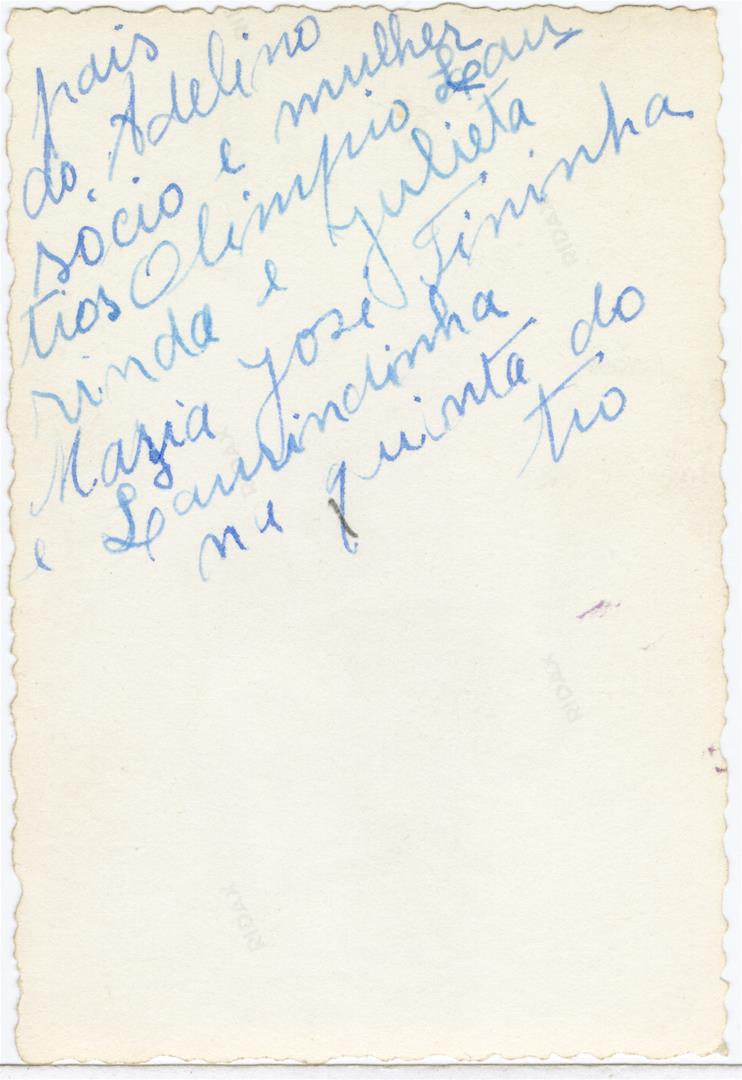 pais
do Adelino
sócio e mulher
tios Olimpio Lau
rinda e Julieta
Maria José Fininha
e Laurindinha
na quinta do
tio
RIDAX
RIDAX
RIDAX
RIDAX